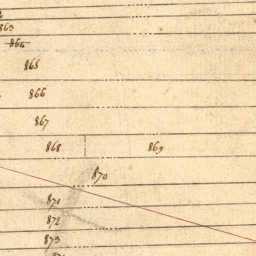 863
864
865
866
867
868 869
870
871
872
873